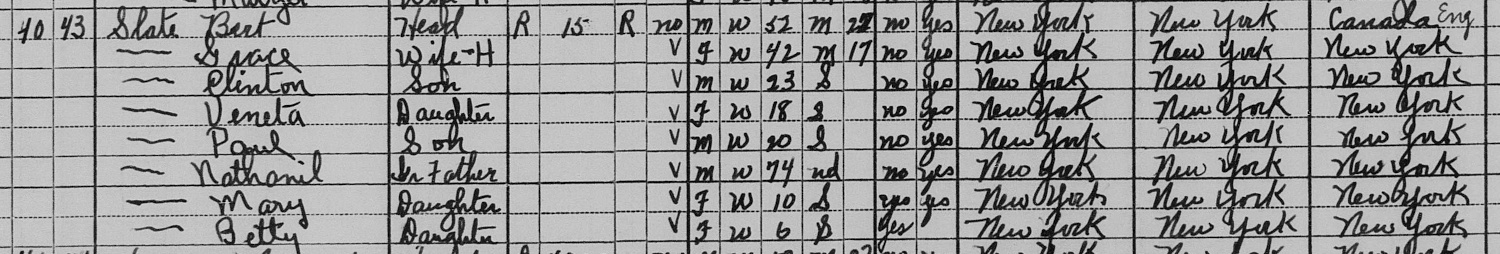 40 43 Slate Bert Head R 15 R no m W 52 m 22 no yes New York New York Canada Eng
— Grace Wife-H V F W 42 m 17 no yes New York New York New York
— Clinton Son V m W 23 S no yes New York New York New York
— Veneta Daughter V F W 18 S no yes New York New York New York
— Paul Son V m W 20 S no yes New York New York New York
— Nathanil Father V m W 74 no yes New York New York New York
— Mary Daughter V F W 10 S yes yes New York New York New York
— Betty Daughter V F W 6 S yes New York New York New York